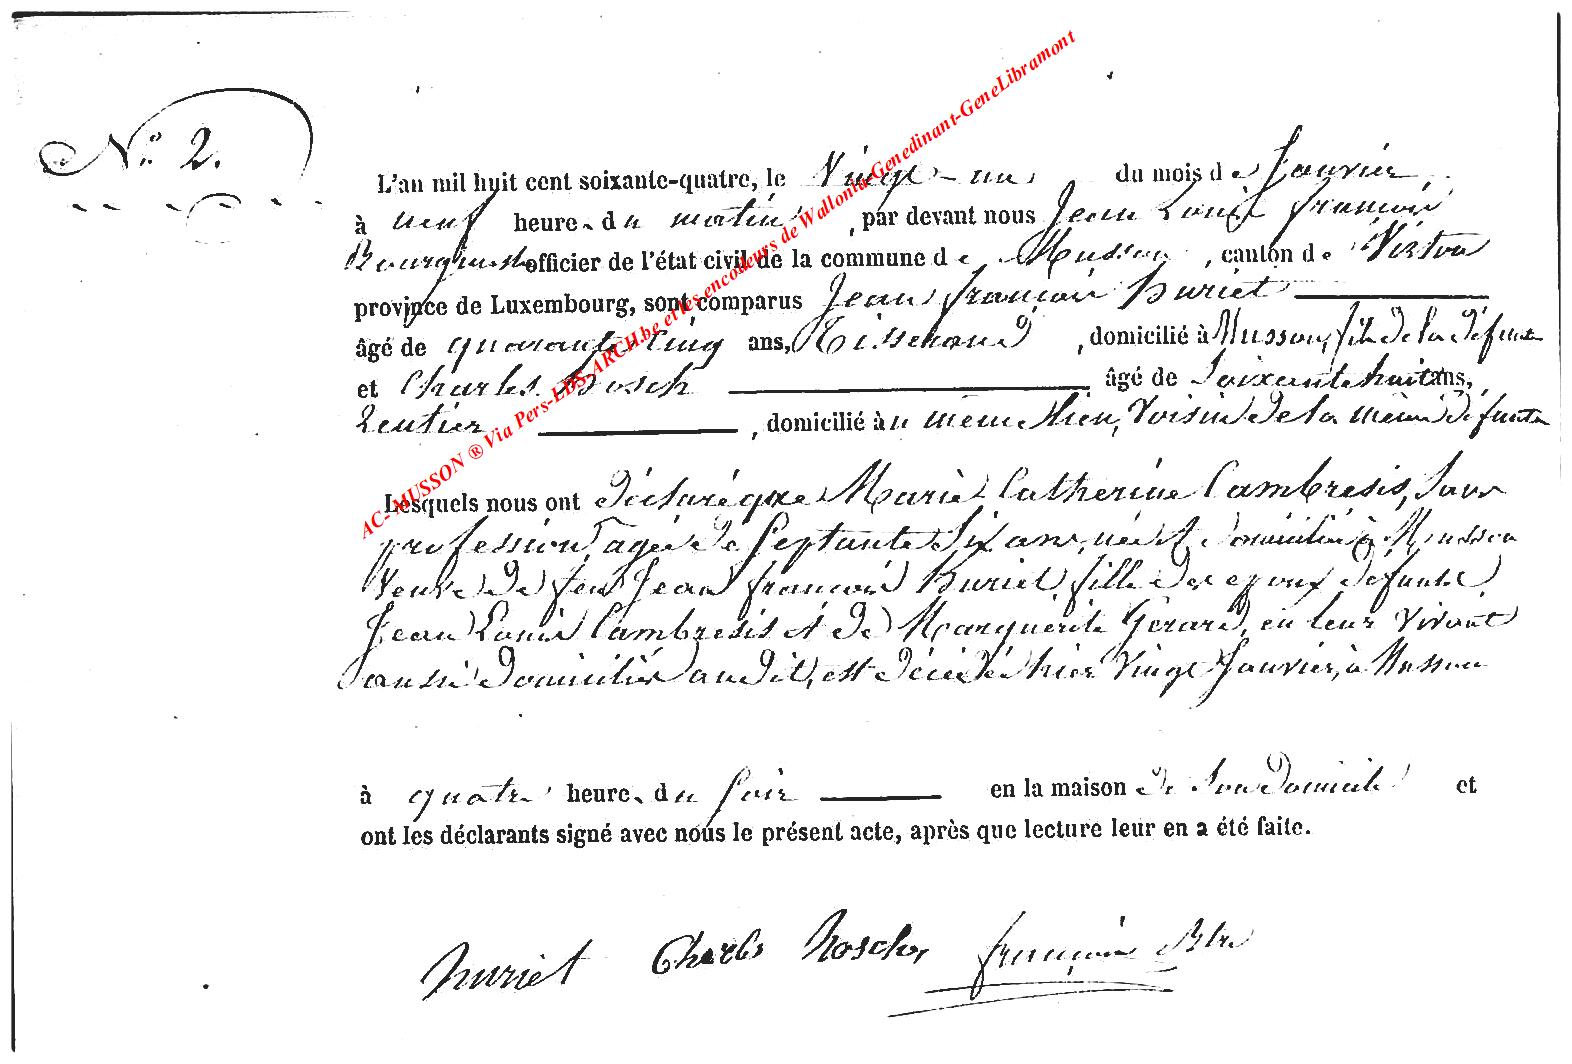 N° 2.
L'an mil huit cent soixante-quatre, le Vingt-un du mois de Janvier
à neuf heures du matin, par devant nous Jean Louis françois
Bourgmestre officier de l'état civil de la commune de Musson, canton de Virton
province de Luxembourg, sont comparus Jean françois Huriet
âgé de quarante cinq ans, Tisserand, domicilié à Musson, fils de la défunte
et Charles Hosch âgé de Soixante huit ans,
Rentier, domicilié au même lieu, Voisin de la même défunte
Lesquels nous ont déclaré que Marie Catherine Cambresis, Sans
profession, agée de Septante Six ans, née et domiciliée à Musson
Veuve de feu Jean françois Huriet, fille des epoux défunts
Jean Louis Cambresis et de Marguerite Gérard, en leur vivant
aussi domiciliés audit, est décédée hier Vingt Janvier, à Musson
à quatre heures du Soir en la maison de Son domicile et
ont les déclarants signé avec nous le présent acte, après que lecture leur en a été faite.
huriet Charles Hosch françois Btre
AC-MUSSON ® Via Pers-LDS-ARCH.be et les encodeurs de Wallonia-Genedinant-GeneLibramont